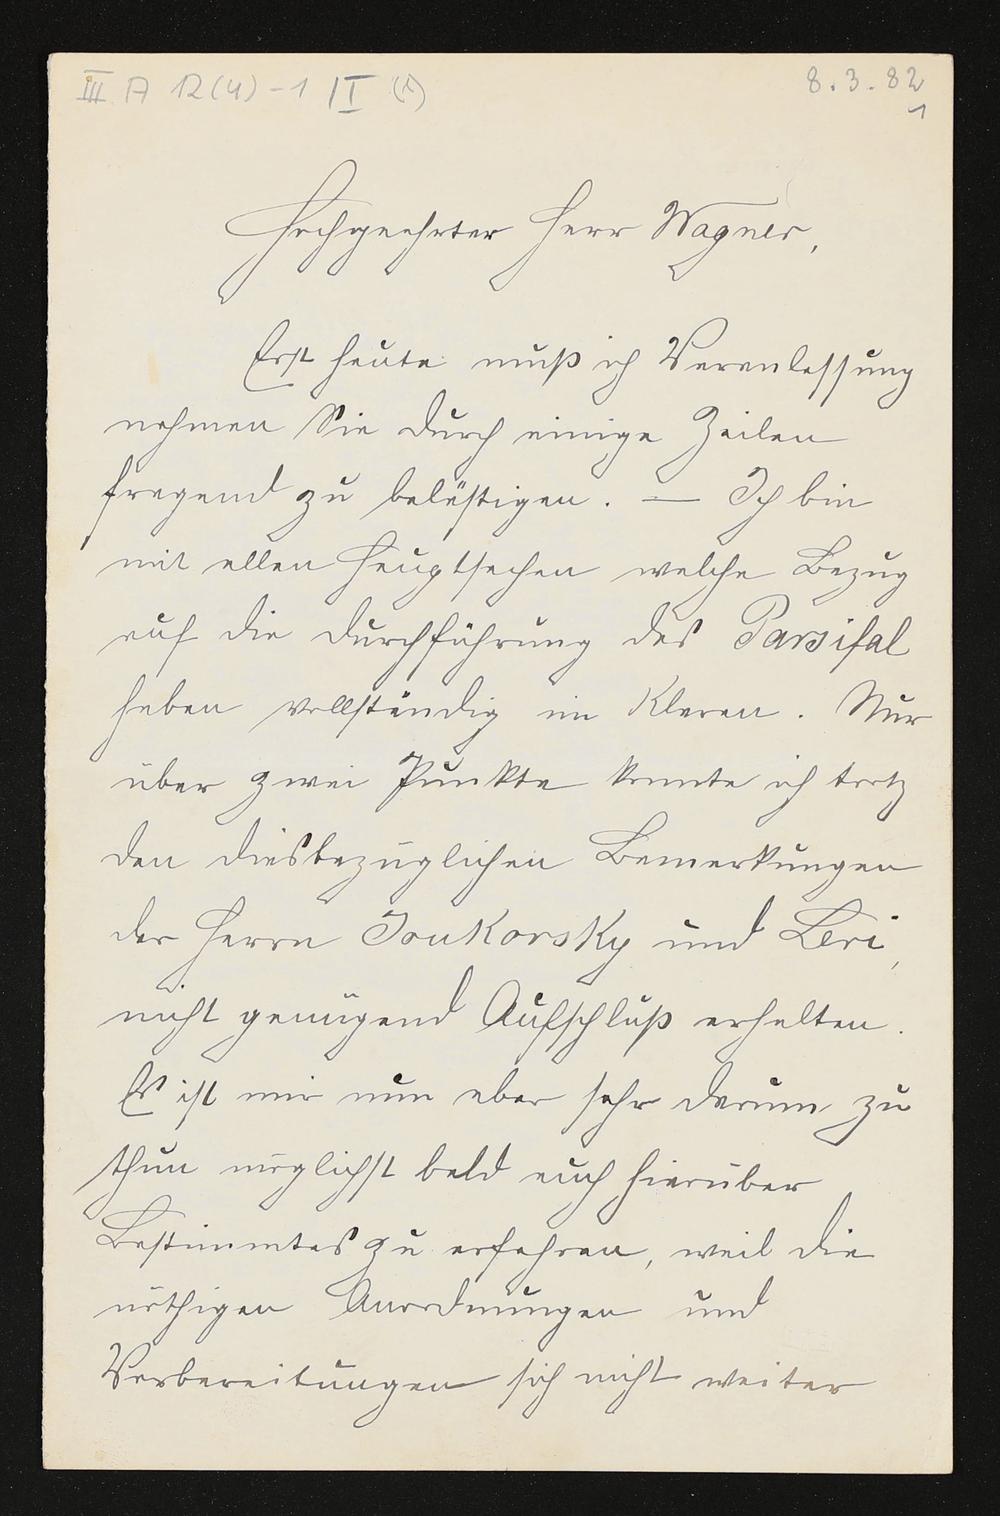 III A 12(4)-1 II (1)
8.3.82
1
Hochgeehrter Herr Wagner,
Erst heute muß ich Veranlassung
nehmen Sie durch einige Zeilen
fragend zu belästigen. — Ich bin
mit allen Hauptsachen welche Bezug
auf die Durchführung des Parsifal
haben vollständig im Klaren. Nur
über zwei Punkte konnte ich trotz
den diesbezüglichen Bemerkungen
der Herrn Joukovsky und Levi,
nicht genügend Aufschluß erhalten.
Es ist mir nun aber sehr darum zu
thun möglichst bald auch hierüber
Bestimmtes zu erfahren, weil die
nöthigen Anordnungen und
Vorbereitungen sich nicht weiter